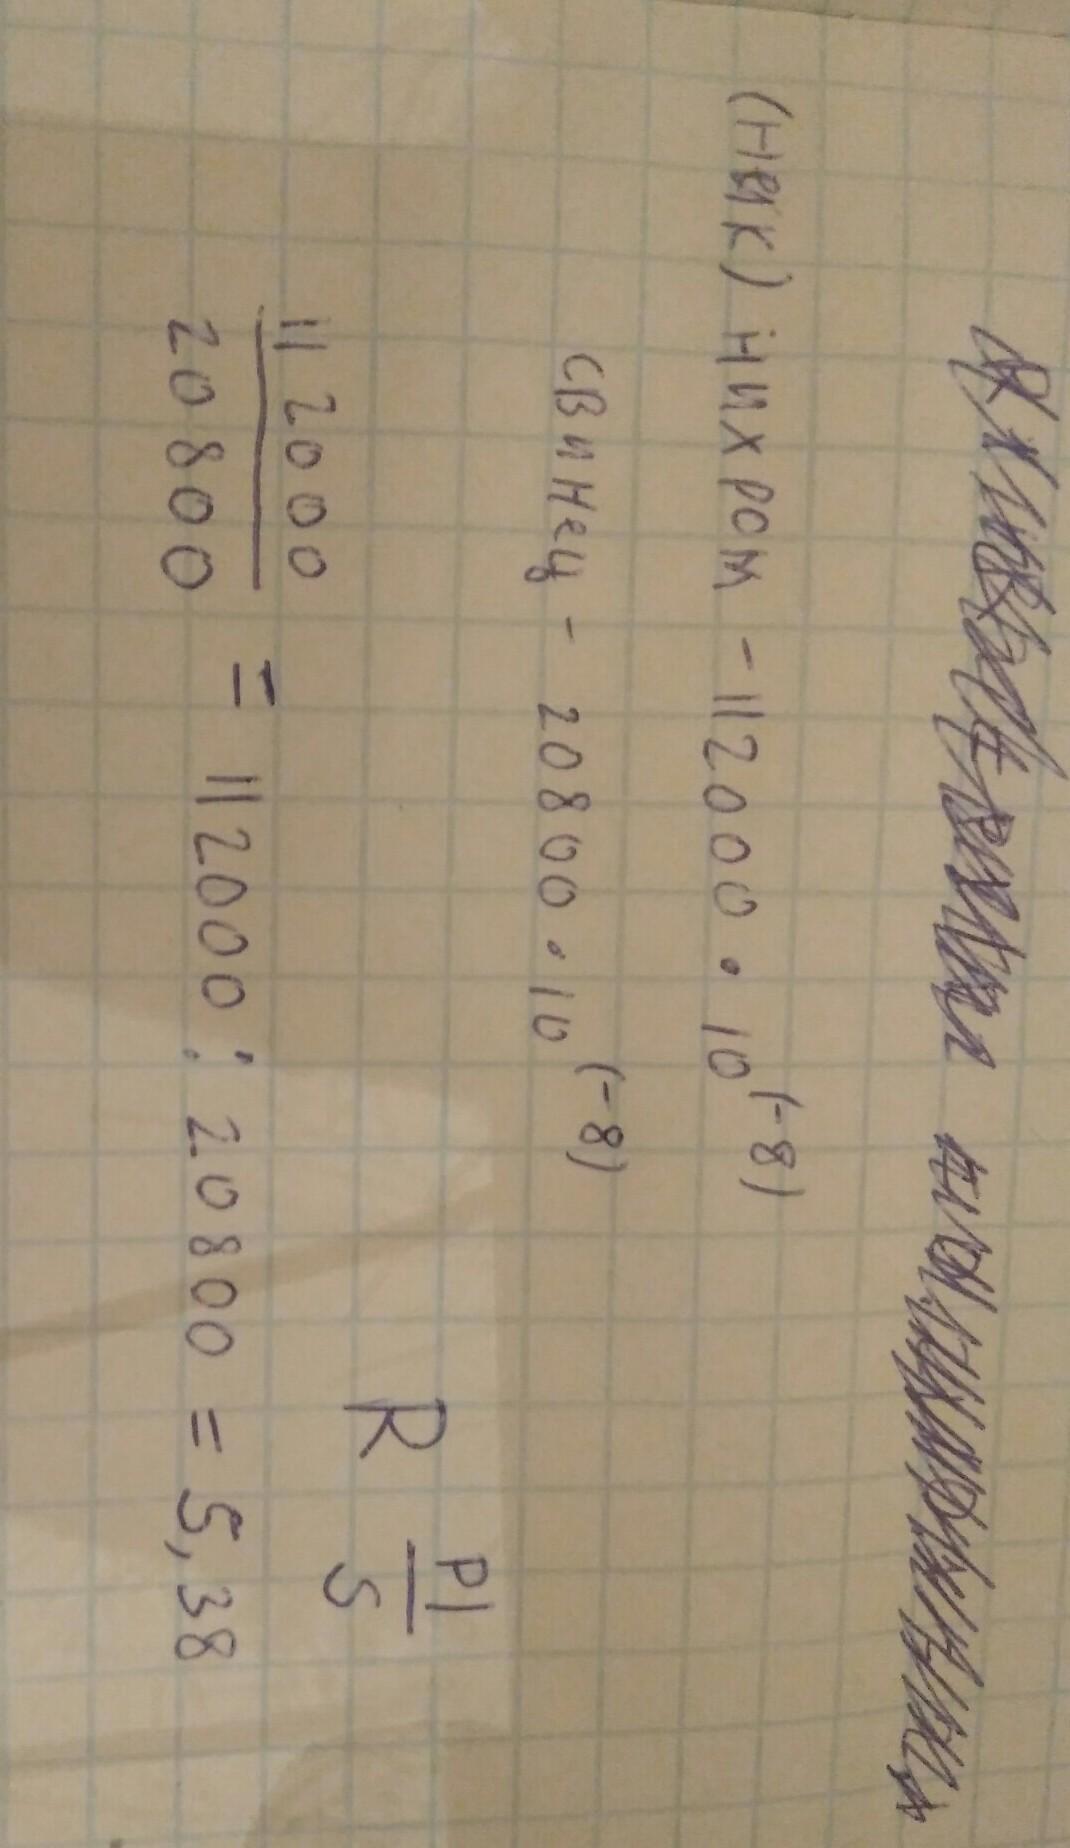 (неик) нихром - 112000 · 10^(-8)
свинец - 20800 · 10^(-8)
R pl/s
112000/20800 = 112000 : 20800 = 5,38